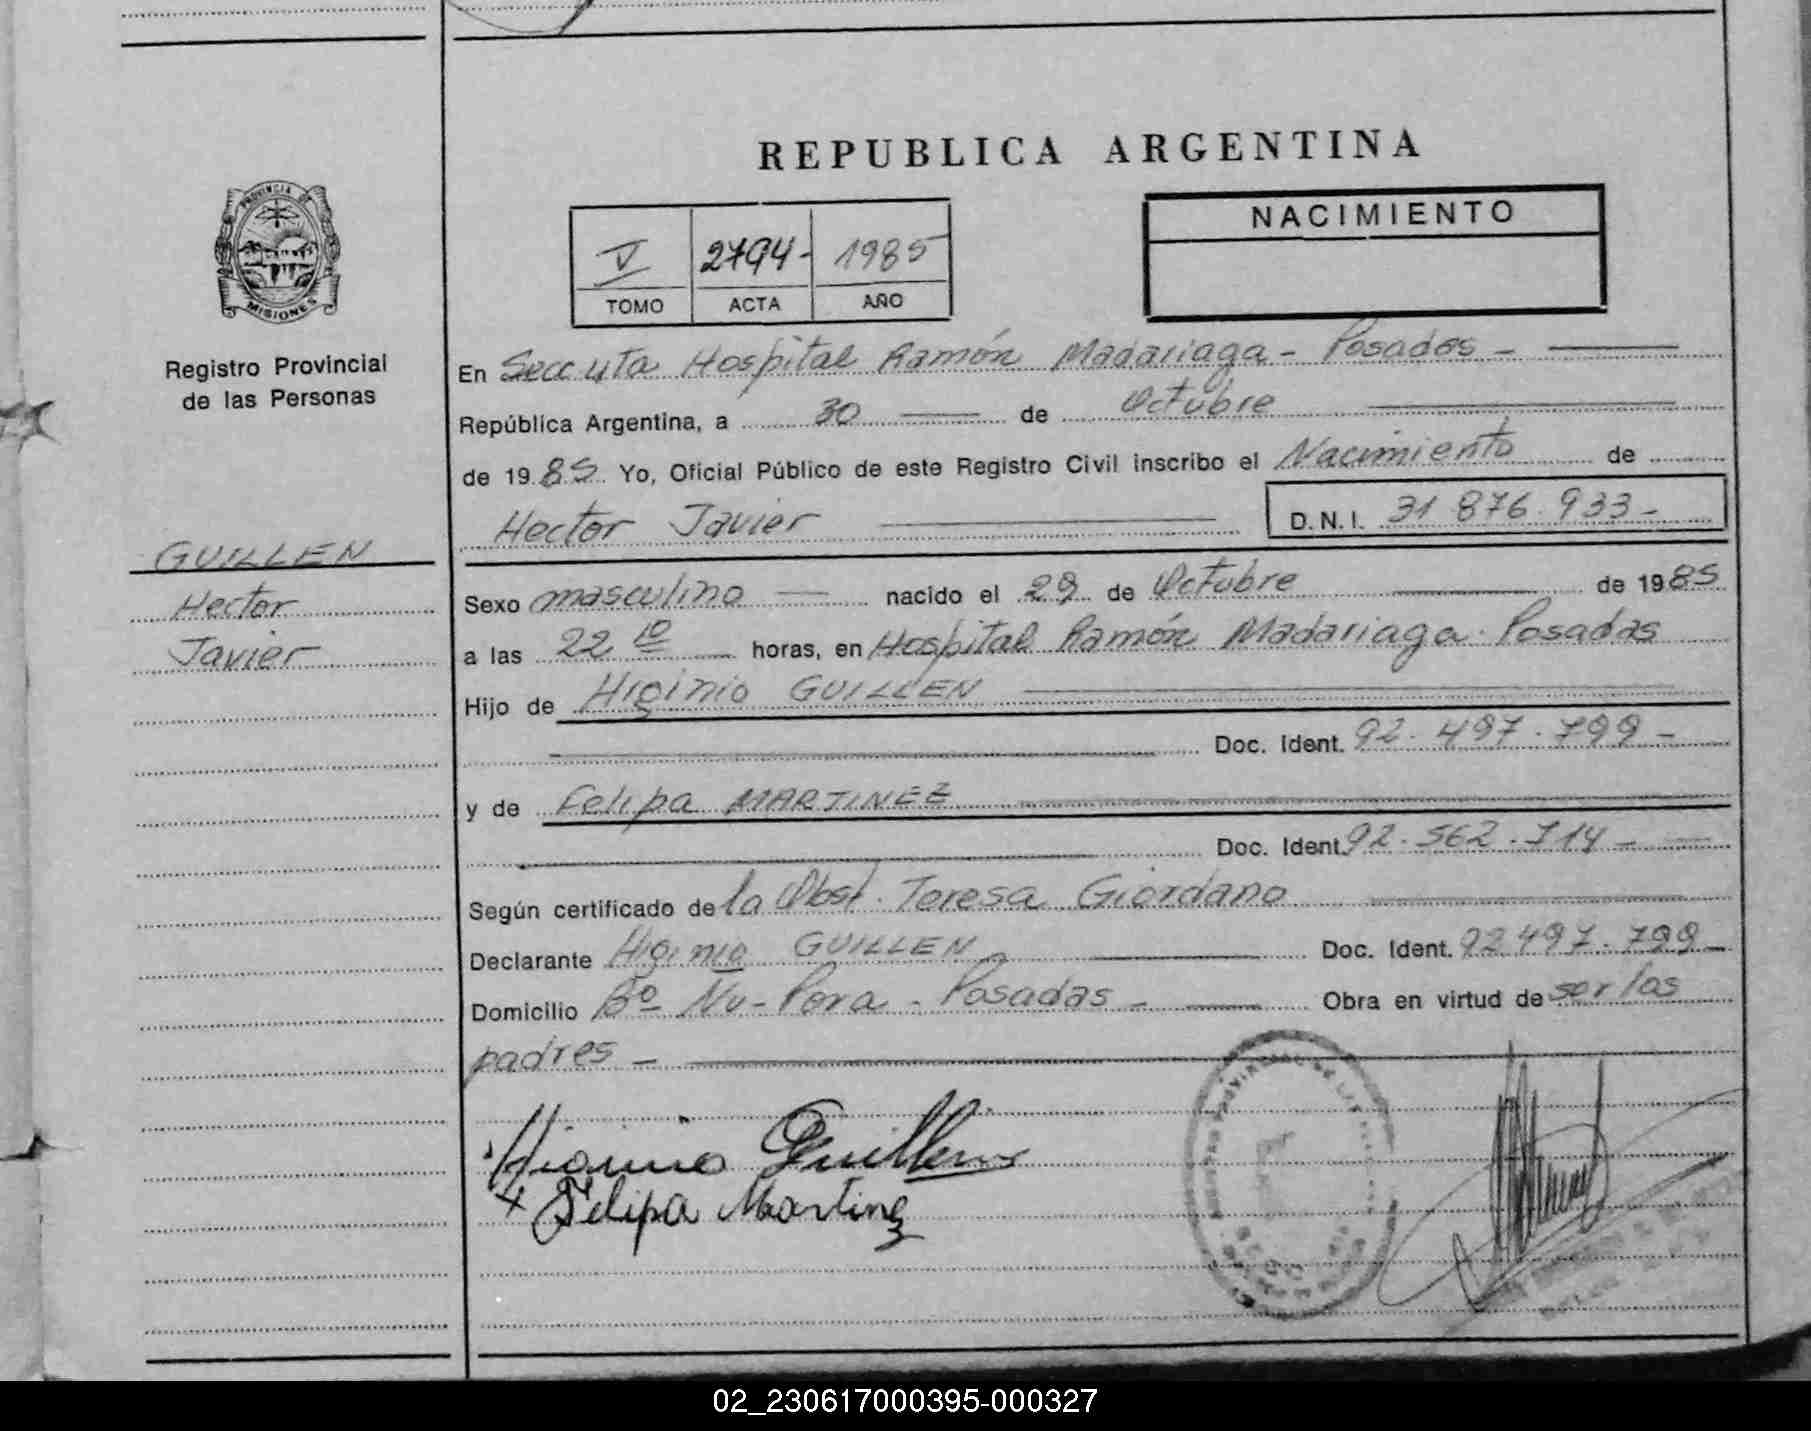 REPUBLICA ARGENTINA
PROVINCIA DE
MISIONES
Registro Provincial
de las Personas
V 2794- 1985
TOMO ACTA AÑO
NACIMIENTO
En Secc uta Hospital Ramón Madariaga - Posadas -
República Argentina, a 30 de Octubre
de 1985. Yo, Oficial Público de este Registro Civil inscribo el Nacimiento de
Hector Javier D.N.I. 31 876.933-
GUILLEN
Hector
Javier
Sexo masculino nacido el 29 de Octubre de 1985
a las 22 10 horas, en Hospital Ramón Madariaga. Posadas
Hijo de Higinio GUILLEN
Doc. Ident. 92.497.799-
y de Felipa MARTINEZ
Doc. Ident. 92.562.714-
Según certificado de la Obst. Teresa Giordano
Declarante Higinio GUILLEN Doc. Ident. 92497.799-
Domicilio Bº Ñu-Pora - Posadas - Obra en virtud de ser los
padres -
Higinio Guillen
+ Felipa Martinez
02_230617000395-000327